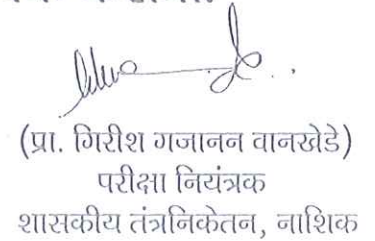 (प्रा. गिरीश गजानन वानखेडे)
परीक्षा नियंत्रक
शासकीय तंत्रनिकेतन, नाशिक